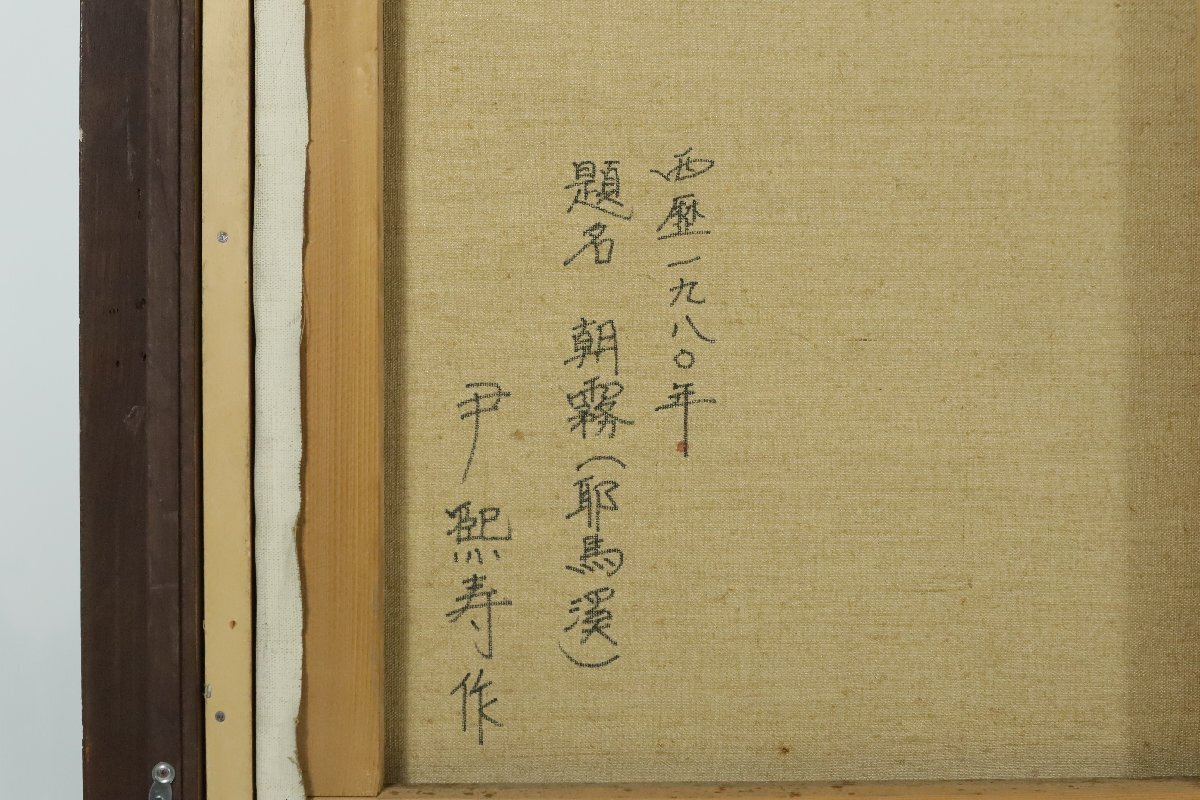 西歴一九八〇年
題名 朝霧(耶馬溪)
尹熙寿作